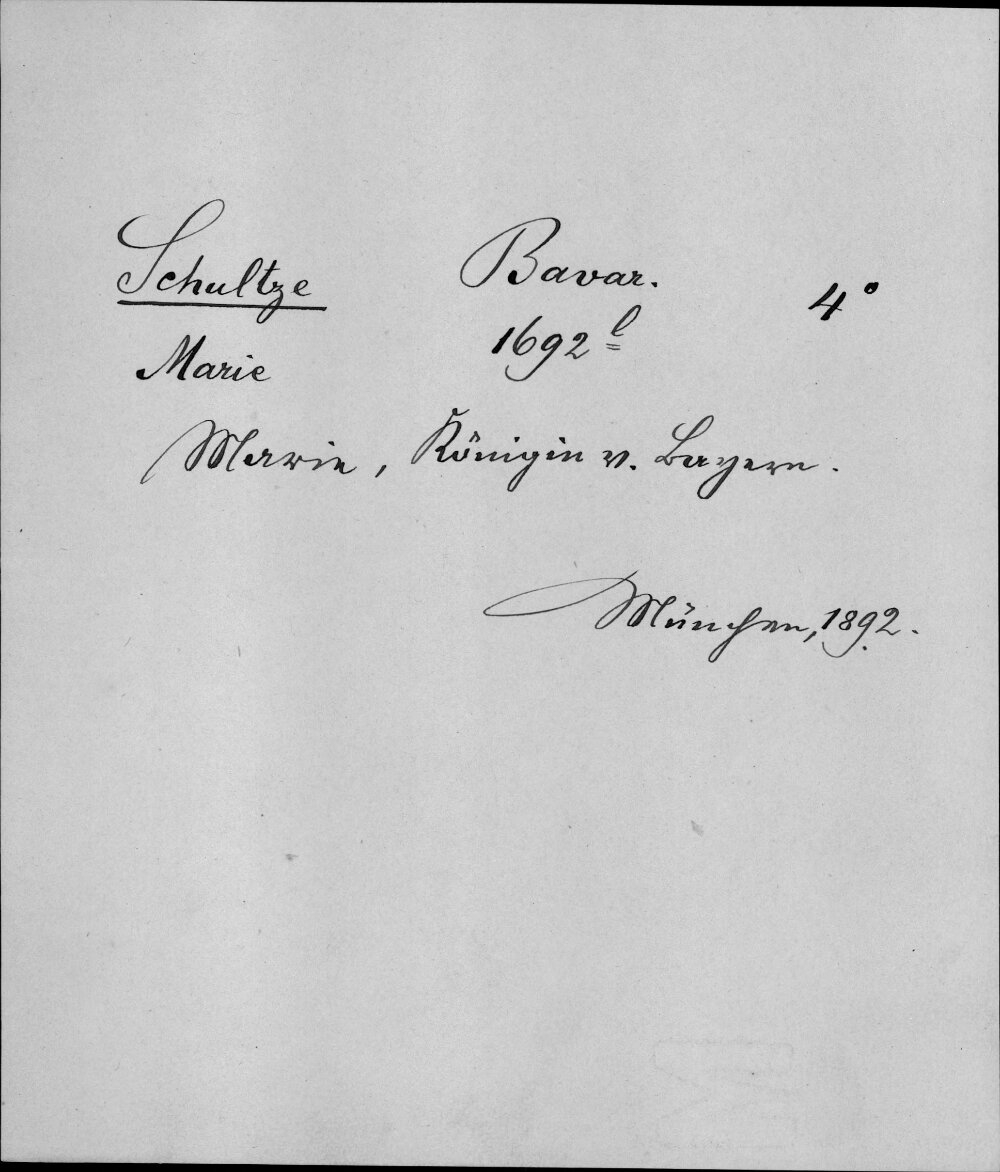 Schultze Bavar. 4°
Marie 1692 l
Marie, Königin v. Bayern.
München, 1892.